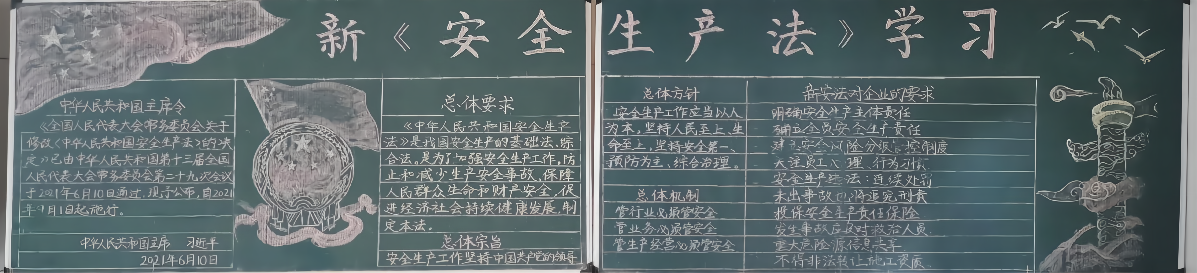 新《安全生产法》学习
中华人民共和国主席令
《全国人民代表大会常务委员会关于
修改〈中华人民共和国安全生产法〉的决
定》已由中华人民共和国第十三届全国
人民代表大会常务委员会第二十九次会议
于2021年6月10日通过，现予公布，自2021
年9月1日起施行。
中华人民共和国主席 习近平
2021年6月10日
总体要求
《中华人民共和国安全生产
法》是我国安全生产的基础法、综
合法。是为了加强安全生产工作，防
止和减少生产安全事故，保障
人民群众生命和财产安全，促
进经济社会持续健康发展，制
定本法。
总体宗旨
安全生产工作坚持中国共产党的领导
总体方针
安全生产工作应当以人
为本，坚持人民至上、生
命至上，坚持安全第一、
预防为主、综合治理。
总体机制
管行业必须管安全
管业务必须管安全
管生产经营必须管安全
新安法对企业的要求
明确安全生产主体责任
明确全员安全生产责任
建立安全风险分级管控制度
关注员工心理、行为习惯
安全生产违法：连续处罚
未出事故也将追究刑责
投保安全生产责任保险
发生事故应及时救治人员
重大危险源信息共享
不得非法转让施工资质